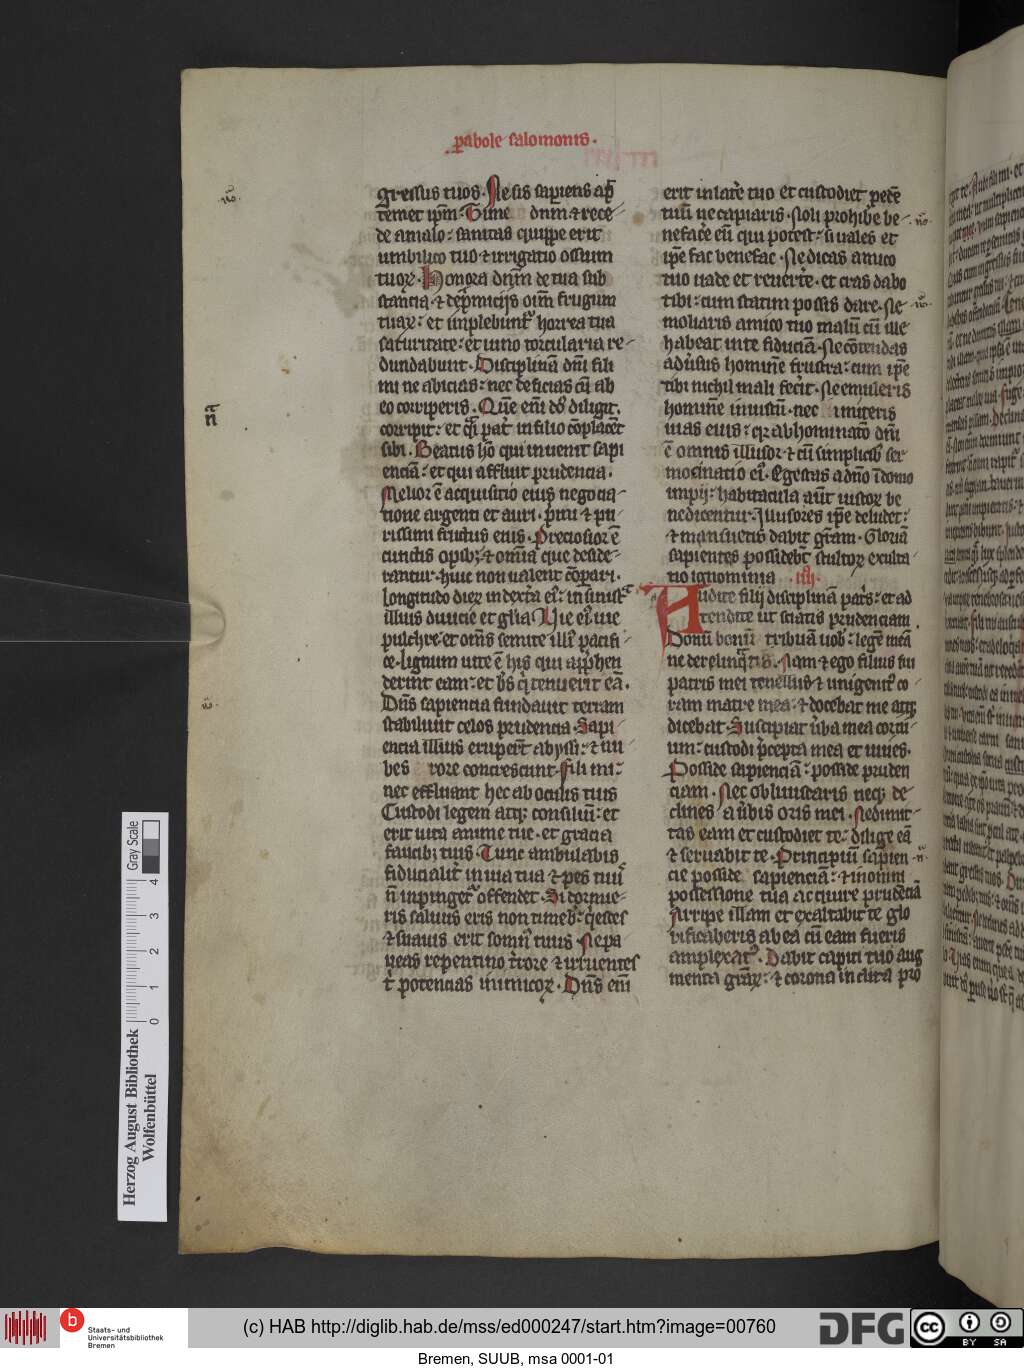 ꝑabole salomonis.
gressus tuos. Ne sis sapiens apd̄
temet ip̄m. Time dn̄m ⁊ rece-
de a malo: sanitas quippe erit
umbilico tuo ⁊ irrigatio ossium
tuoꝝ. Honora dn̄m de tua sub
stancia. ⁊ de p̲miciis oīm frugum
tuaꝝ: et implebunt᷑ horrea tua
saturitate: et uino torcularia re-
dundabunt. Disciplinā dn̄i fili
mi ne abicias: nec deficias cū ab
eo corriperis. Quē eni dn̄s diligit.
corripit: et q̄si pat᷑ in filio cōplacet
sibi. Beatus hō qui inuenit sapi
enciā: et qui affluit prudencia.
Melior ē acquisitio eius negocia-
tione argenti et auri. primi ⁊ pu-
rissimi fructus eius. Preciosior ē
cunctis opibꝫ. ⁊ omīa que deside-
rantur. huic non ualent cōpari.
longitudo dieꝝ in dext᷑a ei᷒: in sinist᷑
illius diuicie et glīa Uie ei᷒ uie
pulchre. et om̄s semite illi᷒ pacifi
ce. lignum uite ē his qui app̲hen
derint eam: et bt̄s q̄ tenuerit eā.
Dn̄s sapiencia fundauit terram
stabiliuit celos prudencia. Sapi
encia illius eruper̄t abyssi: ⁊ nu
bes rore concrescunt. Fili mi:
nec effluant hec ab oculis tuis
Custodi legem atqꝫ consiliū: et
erit uita anime tue. et gracia
faucibꝫ tuis. Tunc ambulabis
fiducialit᷑ in uia tua ⁊ pes tuus
n̄ inpinget᷑ offendet. Si dormie-
ris saluus eris non timeb᷑: q̄esces
⁊ suauis erit somn᷒ tuus. Ne pa
ueas repentino t᷑rore ⁊ irruentes
t᷑ potencias inimicoꝝ. Dn̄s enī
erit in lat᷑e tuo et custodiet pedē
tuū ne capiaris. Noli prohib᷑e be-
nefac᷑e eū qui potest: si uales et
ip̄e fac benefac. Ne dicas amico
tuo uade et reuert᷑e. et cras dabo
tibi: cum statim possis dare. Ne
moliaris amico tuo malū cū ille
habeat in te fiduciā. Ne cōtendas
adu᷑sus hominē frustra: cum ip̄e
tibi nichil mali fec᷑it. Ne emuleris
hominē iniustū. nec imiteris
uias eius: qꝛ abhominatō dn̄i
ē omnis illusor ⁊ cū simplicibꝫ ser
mocinatio ei᷒. Egestas a dn̄o ī domo
impij: habitacula aūt iustoꝝ be
nedicentur. Illusores ip̄e deludet:
⁊ mansuetis dabit gr̄am. Gloriā
sapientes possideb̄t stultoꝝ exalta
tio ignominia .iiij.
Audite filij disciplinā pat᷑s: et ad
tendite ut sciatis prudenciam.
Donū bonū tribuā uob᷒: legē meā
ne derelinq̄tis. Nam ⁊ ego filius fui
patris mei tenellus ⁊ unigenit᷒ co
ram matre mea: ⁊ docebat me atqꝫ
dicebat. Suscipiat u᷑ba mea cor tu
um: custodi p̄cepta mea et uiues.
Posside sapienciā: posside pruden
ciam. Nec obliuiscaris neqꝫ de-
clines a u᷑bis oris mei. Ne dimit-
tas eam et custodiet te: dilige eā
⁊ seruabit te. Principiū sapien
cie posside sapienciā: ⁊ in omni
possessione tua acquire prudēciā
Arripe illam et exaltabit te glo
rificaberis ab ea cū eam fueris
amplexat᷒. Dabit capiti tuo aug
menta gr̄aꝝ: ⁊ corona inclita pro
Herzog August Bibliothek
Wolfenbüttel
0 1 2 3 4
Gray Scale
b
Staats- und
Universitätsbibliothek
Bremen
(c) HAB http://diglib.hab.de/mss/ed000247/start.htm?image=00760
DFG
cc
BY SA
Bremen, SUUB, msa 0001-01